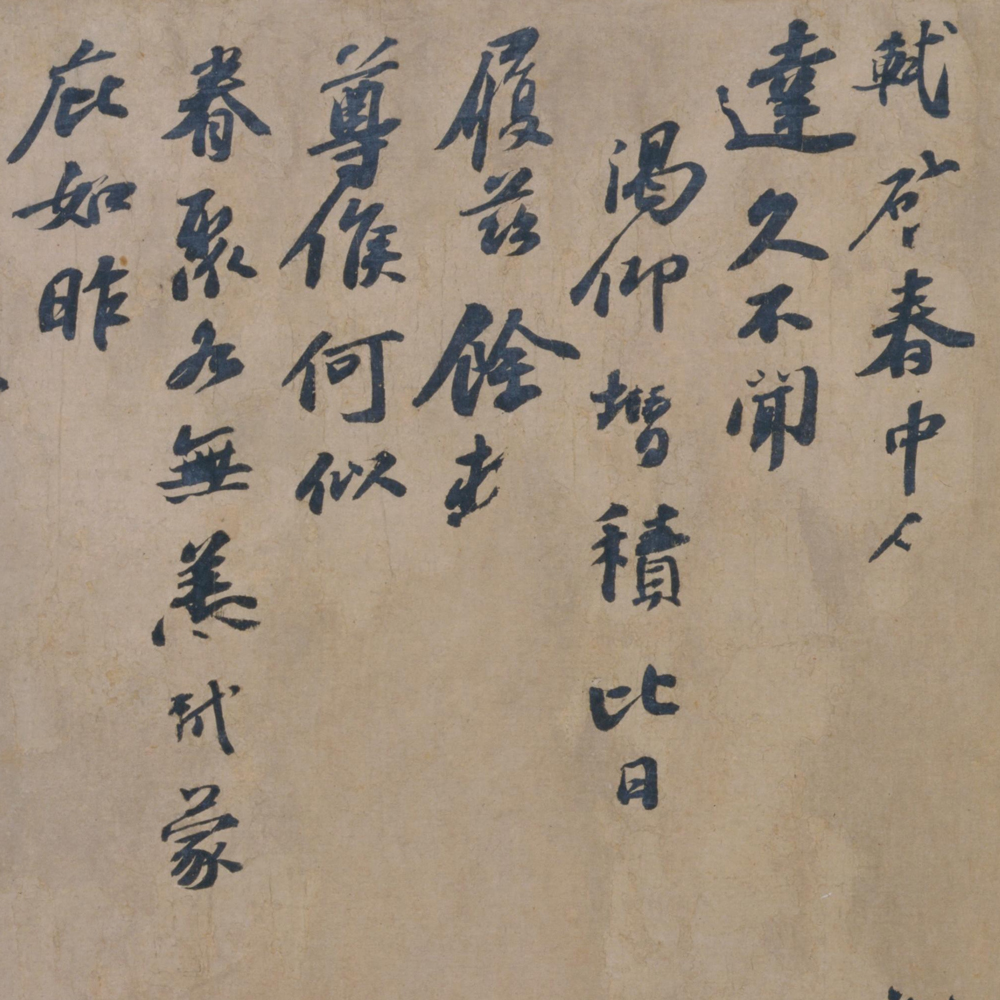 軾啓春中人
達久不聞
渴仰增積比日
履茲餘春
尊候何似
眷聚各無恙軾蒙
庇如昨